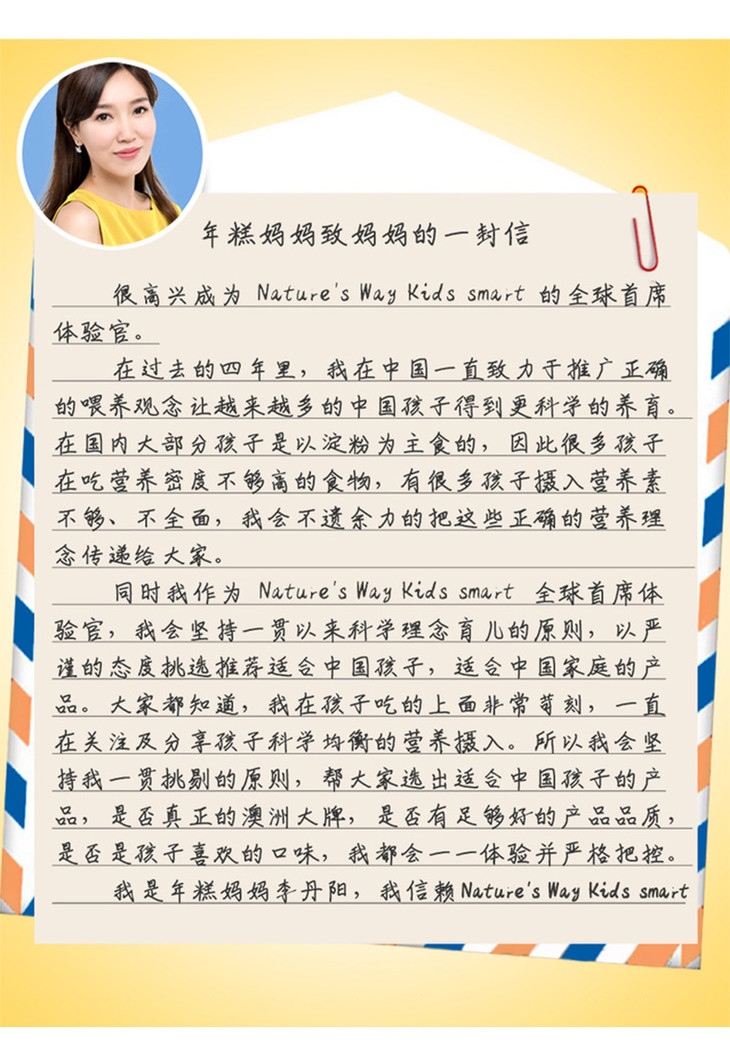 年糕妈妈致妈妈的一封信
很高兴成为 Nature's Way Kids smart 的全球首席
体验官。
在过去的四年里，我在中国一直致力于推广正确
的喂养观念让越来越多的中国孩子得到更科学的养育。
在国内大部分孩子是以淀粉为主食的，因此很多孩子
在吃营养密度不够高的食物，有很多孩子摄入营养素
不够、不全面，我会不遗余力的把这些正确的营养理
念传递给大家。
同时我作为 Nature's Way Kids smart 全球首席体
验官，我会坚持一贯以来科学理念育儿的原则，以严
谨的态度挑选推荐适合中国孩子，适合中国家庭的产
品。大家都知道，我在孩子吃的上面非常苛刻，一直
在关注及分享孩子科学均衡的营养摄入。所以我会坚
持我一贯挑剔的原则，帮大家选出适合中国孩子的产
品，是否真正的澳洲大牌，是否有足够好的产品品质，
是否是孩子喜欢的口味，我都会一一体验并严格把控。
我是年糕妈妈李丹阳，我信赖Nature's Way Kids smart